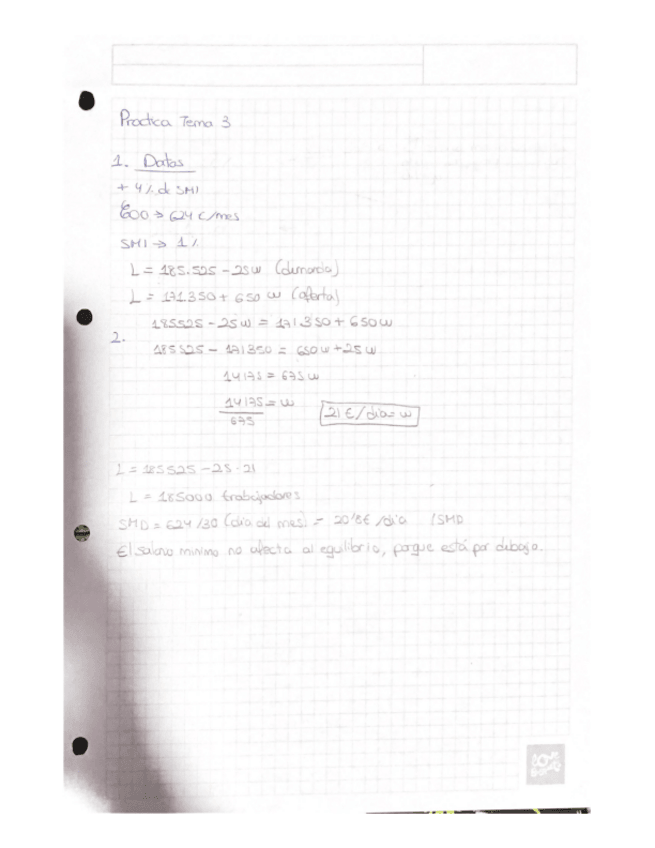 Practica Tema 3
1. Datos
+ 4% de SMI
600 → 624 €/mes
SMI → 1%
L = 185.525 - 25w (demanda)
L = 171.350 + 650 w (oferta)
185525 - 25w = 171.350 + 650w
2.
185525 - 171350 = 650w + 25w
14175 = 675w
14175 = w
675
21 €/dia = w
L = 185525 - 25 · 21
L = 185000 trabajadores
SMD = 624/30 (dia del mes) = 20'8€/dia /SMD
El salario minimo no afecta al equilibrio, porque está por debajo.